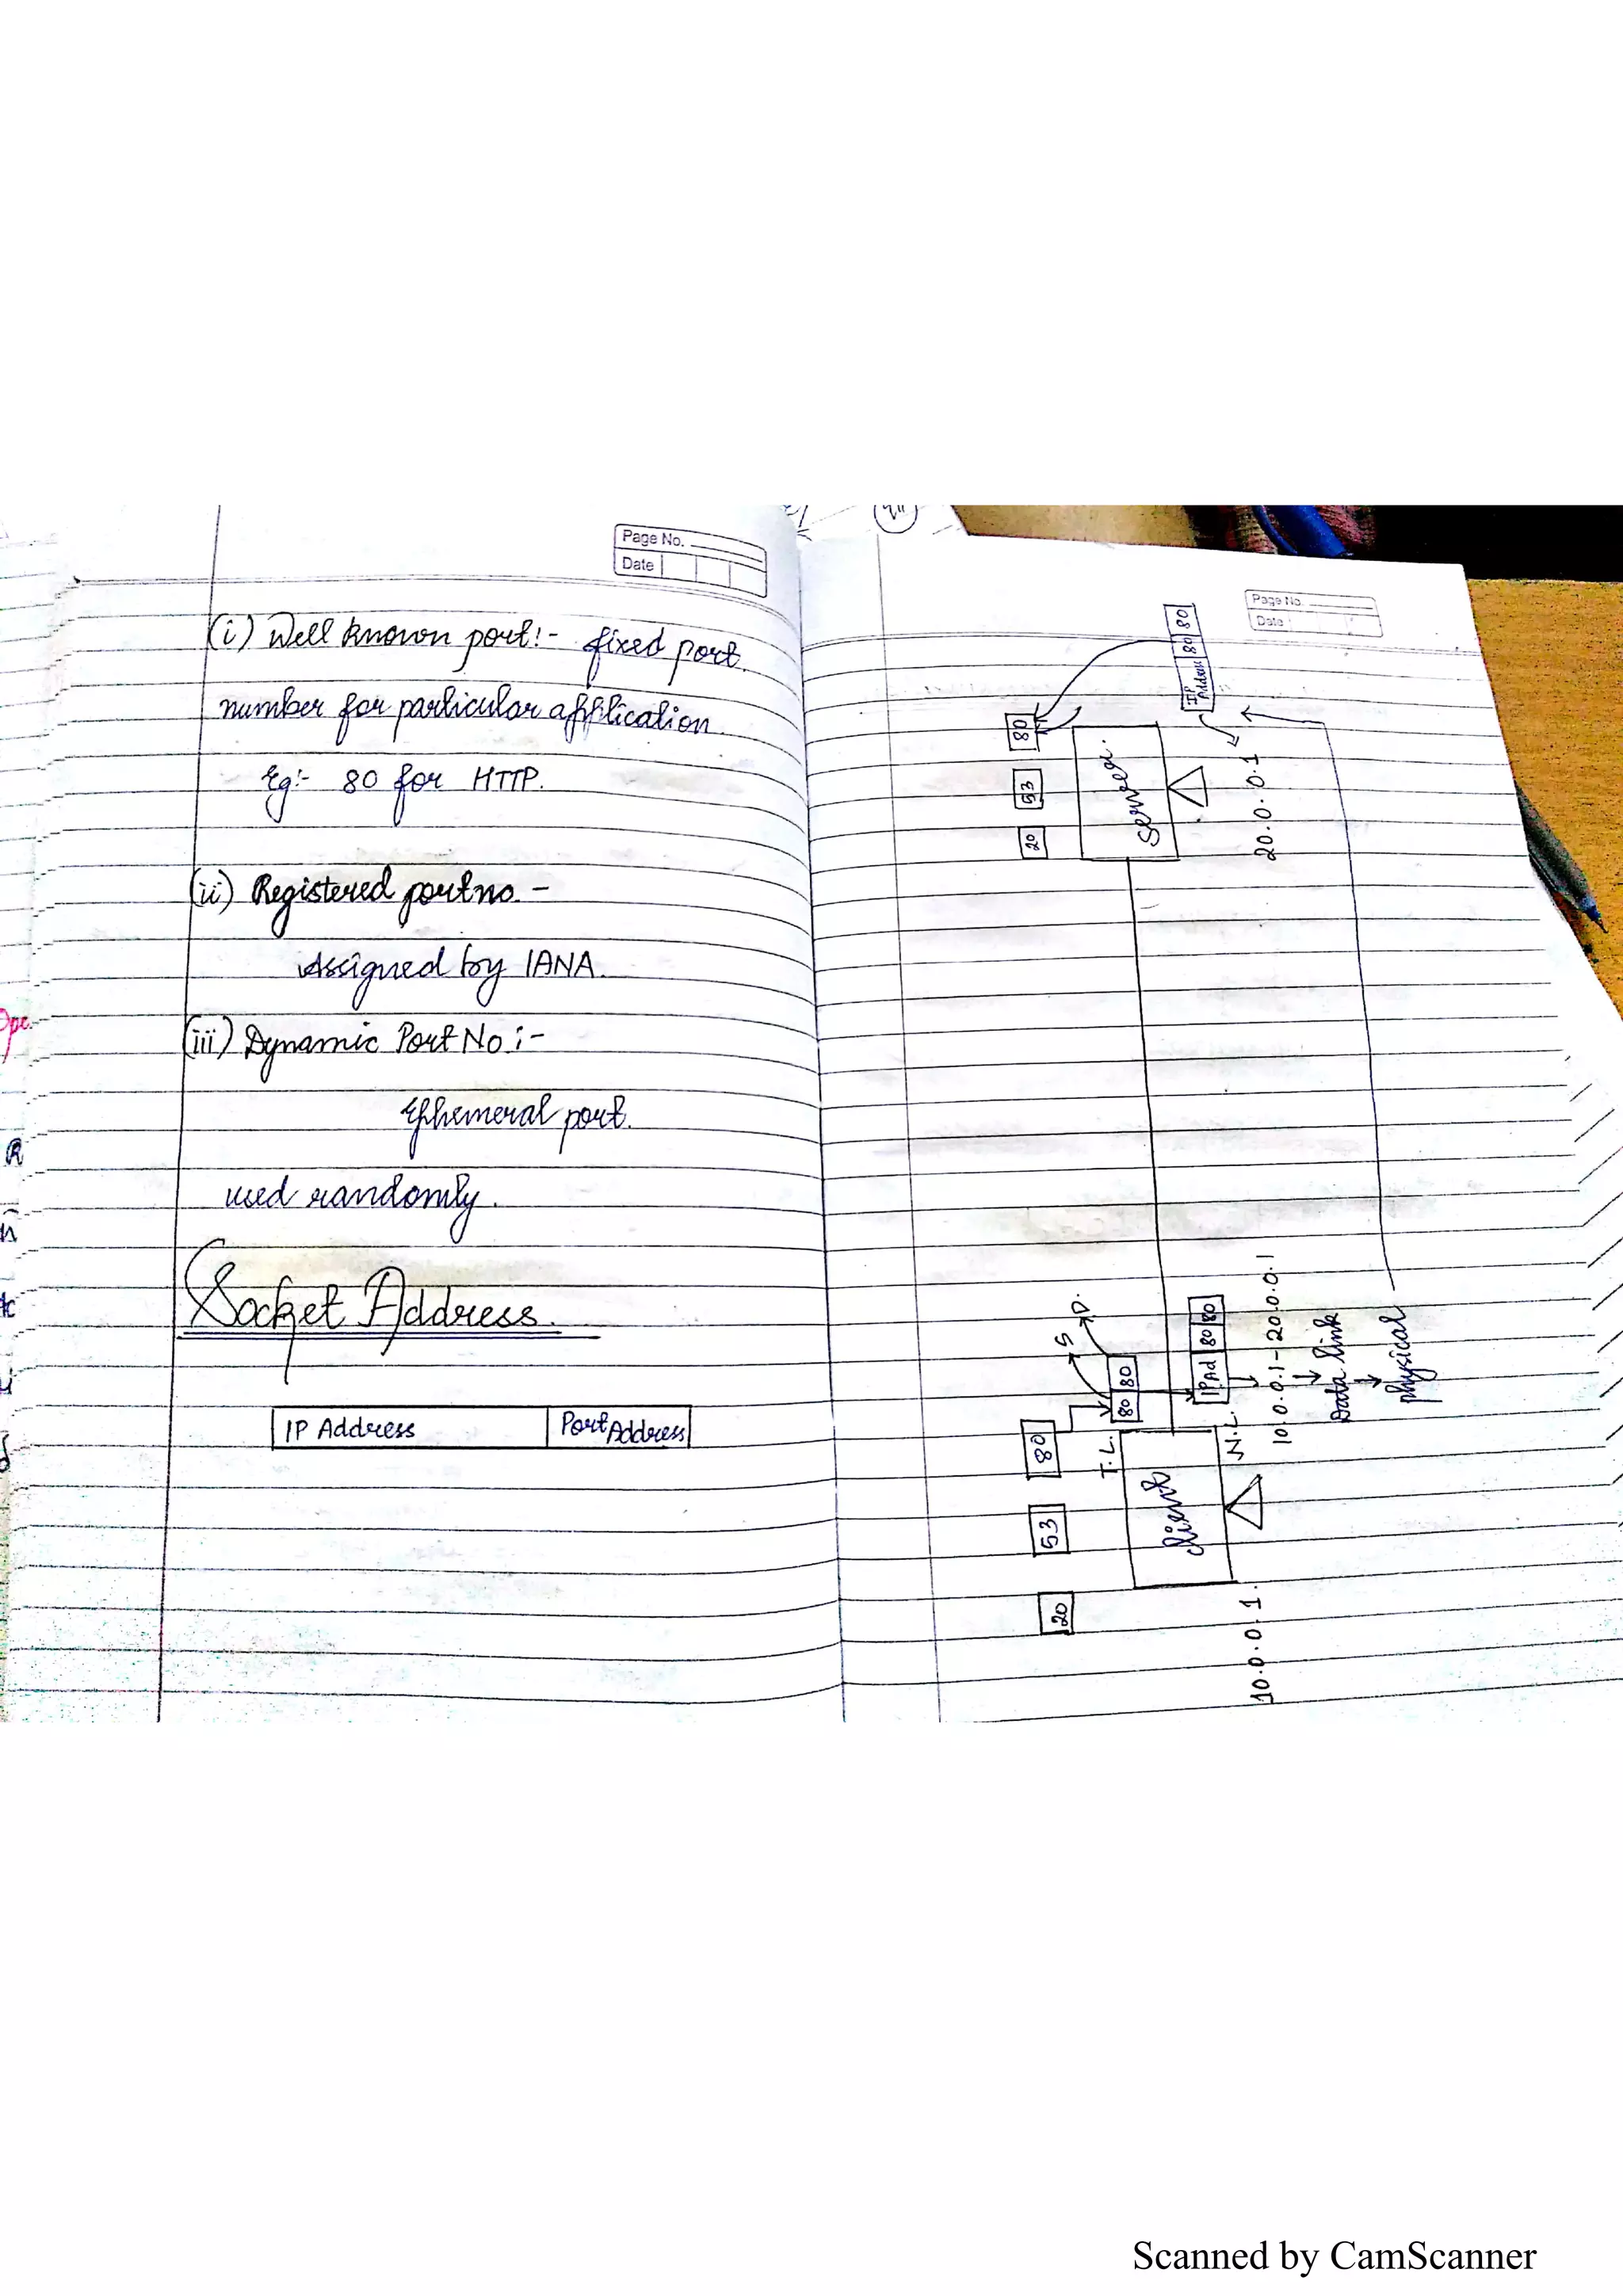 Page No.
Date
(i) Well known port:- fixed port
number for particular application
Eg:- 80 for HTTP.
(ii) Registered port no. -
Assigned by IANA.
(iii) Dynamic Port No:-
Ephemeral port.
used randomly.
Socket Address.
IP Address | Port Address
Page No.
Date
20 53 80
Server.
IP Address 80 80
20.0.0.1
20 53 80
T.L.
80 80
S D.
client
N.L.
IP Ad 80 80
10.0.0.1
10.0.0.1-20.0.0.1
Data link
physical
Scanned by CamScanner